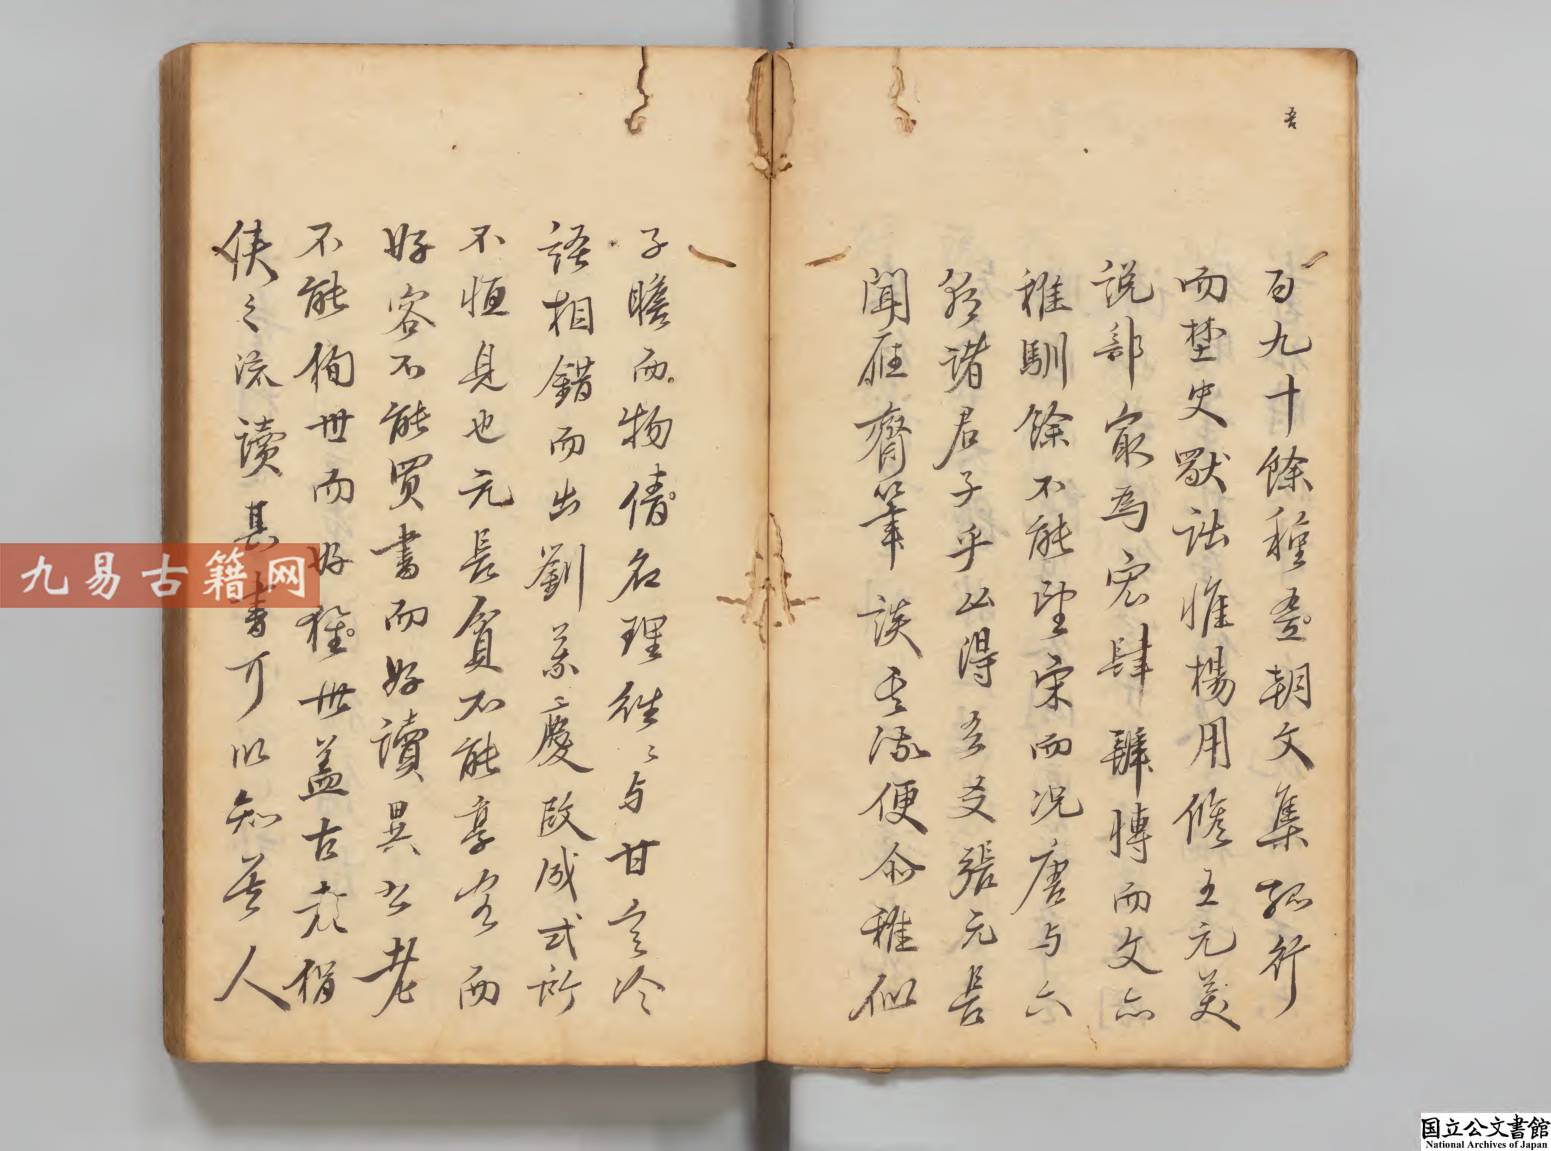 吾
百九十餘種吾朝文集孤行
而埜史厭詘惟楊用脩王元美
說部家為宏肆辨博而文亦
稚馴餘不能望宋而況唐与六
朝諸君子乎迺得吾友張元長
聞雁齋筆談其流便命稚似
子瞻而物情名理往〻与甘言冷
語相錯而出劉義慶段成式所
不恒見也元長貧不能享客而
好客不能買書而好讀異書老
不能徇世而好維世蓋古 狷
俠之流讀其書可以知其人
九易古籍网
国立公文書館
National Archives of Japan